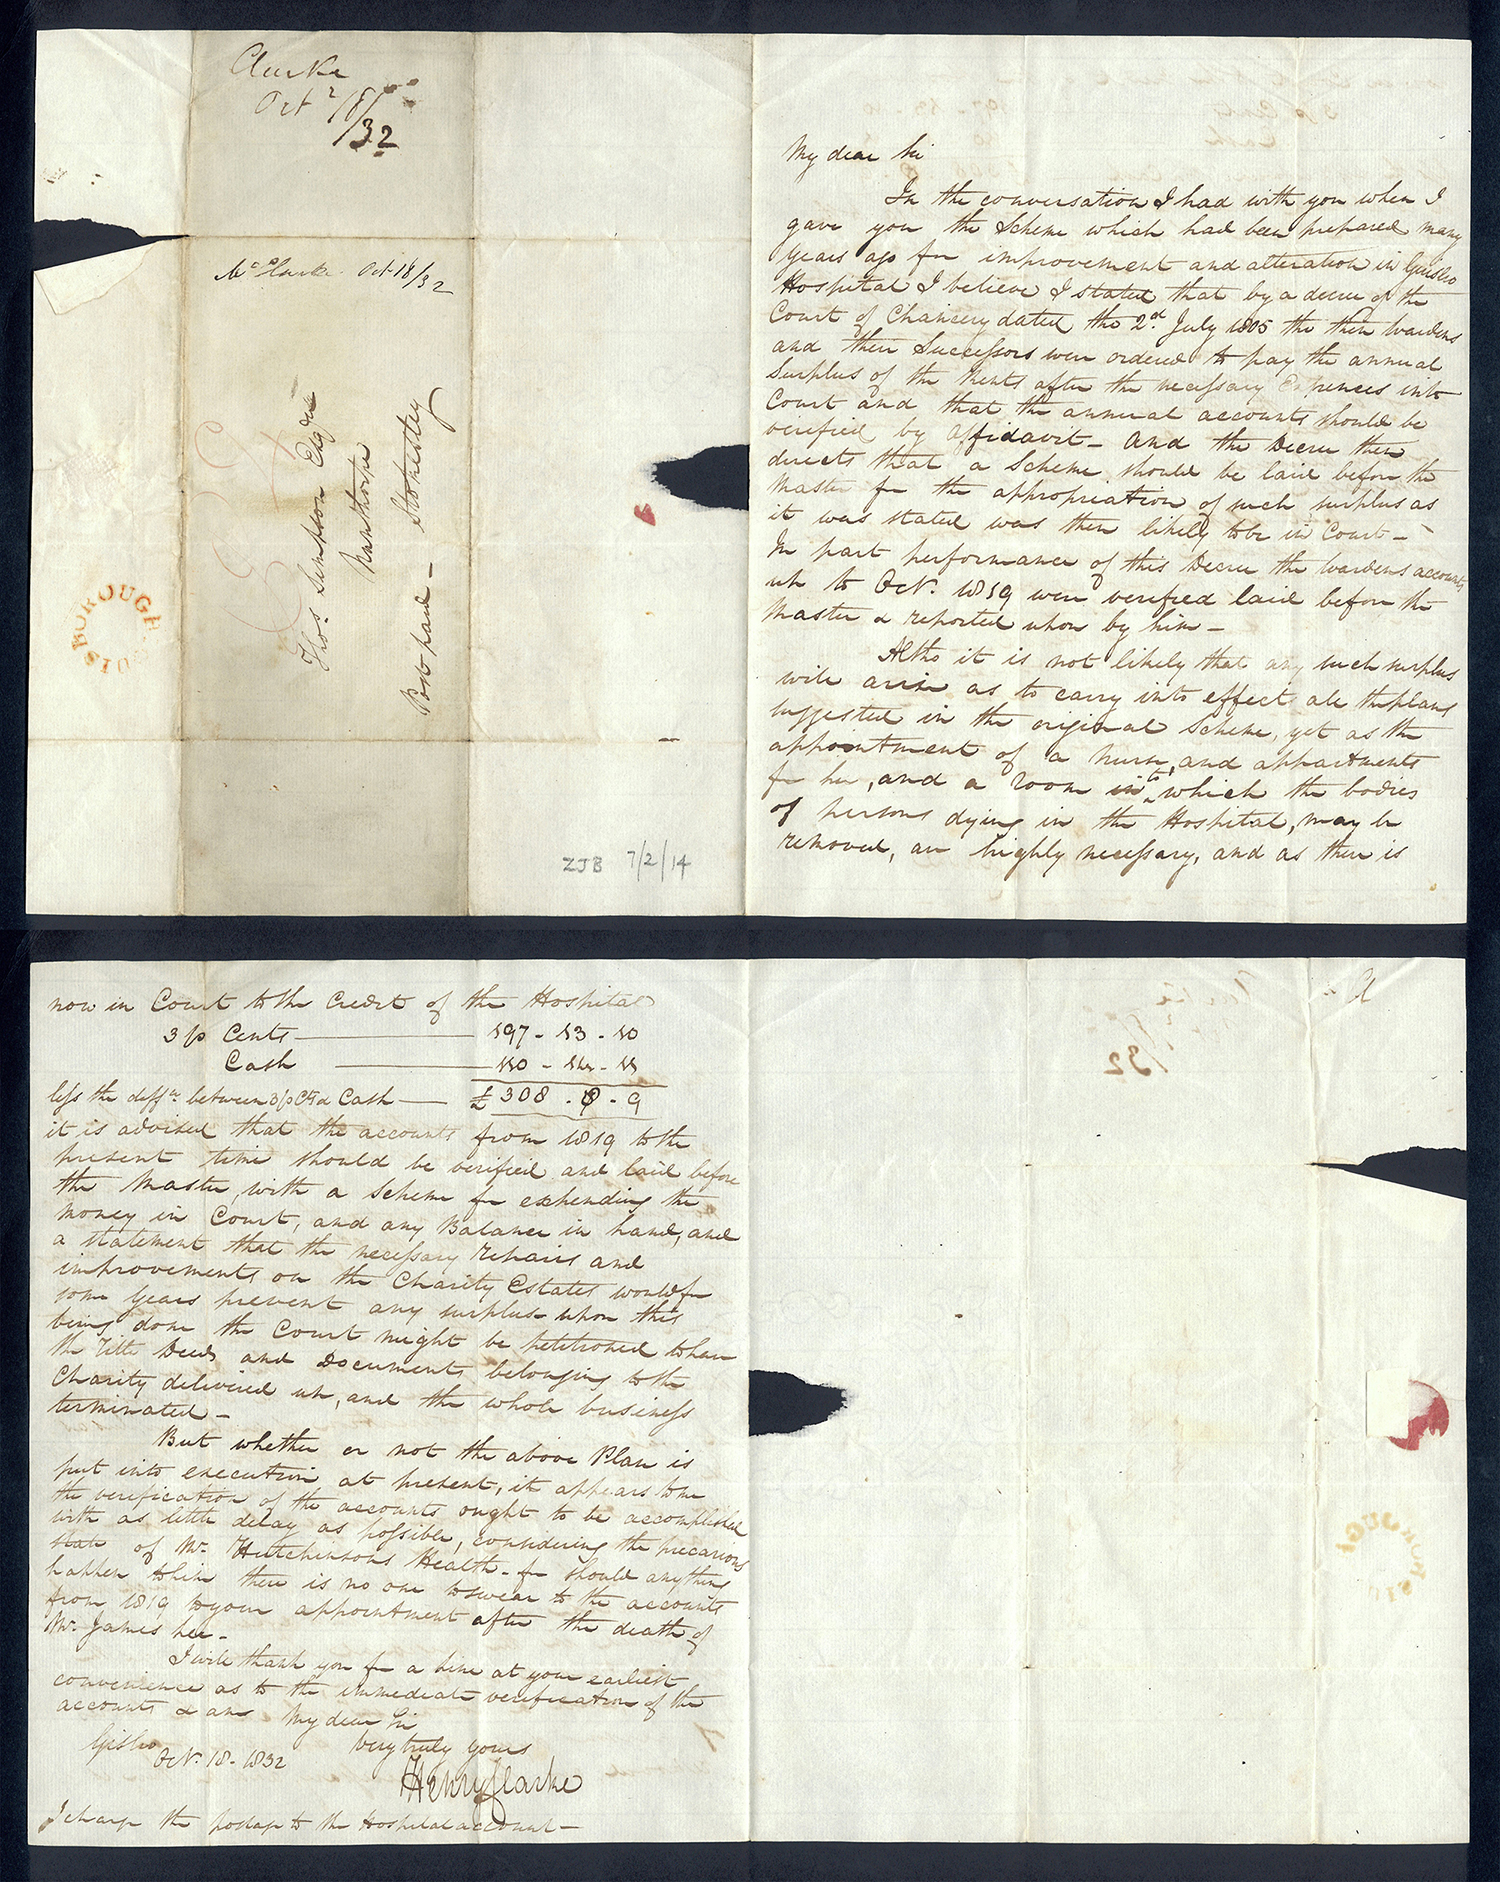 Clarke
Octr 18/
/32
Mr Clarke Oct 18/32
Thos Simpson Esqre
Nunthorpe
Post paid — Stokesley
GUISBOROUGH
ZJB 7/2/14
My dear Sir
In the conversation I had with you when I
gave you the Scheme which had been prepared many
years ago for improvement and alteration in Guisbro
Hospital I believe I stated that by a decree of the
Court of Chancery dated the 2d. July 1805 the then Wardens
and their Successors were ordered to pay the annual
Surplus of the Rents after the necessary Expences into
Court and that the annual accounts should be
verified by affidavit — And the Decree then
directs that a Scheme should be laid before the
Master for the appropriation of such surplus as
it was stated was then likely to be in Court —
In part performance of this Decree the Wardens accounts
up to Oct. 1819 were verified laid before the
Master & reported upon by him —
Altho it is not likely that any such surplus
will arise as to carry into effect all the plans
suggested in the original Scheme, yet as the
appointment of a Nurse, and appartments
for her, and a room into which the bodies
of persons dying in the Hospital, may be
removed, are highly necessary, and as there is
now in Court to the Credit of the Hospital
3 p Cents — 197 - 13 - 10
Cash — 110 -
£308 - 9 - 9
less the diffce. between 3 p Cts & Cash —
it is advised that the accounts from 1819 to the
present time should be verified and laid before
the Master, with a Scheme for expending the
money in Court, and any Balance in hand, and
a statement that the necessary repairs and
improvements on the Charity Estates would for
some years prevent any surplus — upon this
being done the Court might be petitioned to have
the Title Deeds and Documents belonging to the
Charity delivered up, and the whole business
terminated —
But whether or not the above Plan is
put into execution at present, it appears to me
the verification of the accounts ought to be accomplished
with as little delay as possible, considering the precarious
state of Mr. Hutchinsons Health — for should anything
happen to him there is no one to swear to the accounts
from 1819 to your appointment after the death of
Mr. James Lee —
I will thank you for a line at your earliest
convenience as to the immediate verification of the
accounts & am My dear Sir
Very truly yours
Gisbro
Oct. 18 - 1832
Henry Clarke
I charge the postage to the Hospital account —